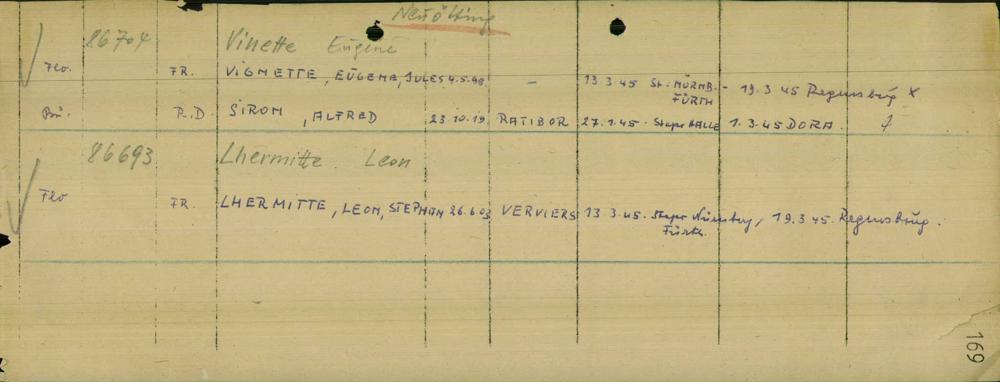 Neuötting
86704 Vinette Eugene
Flo. FR. VIGNETTE, EUGENE, JULES 4.5.98 – 13.3.45 St: NÜRNB.- 19.3.45 Regensburg x
FÜRTH
Bu. R.D. SIRON, ALFRED 23.10.19 RATIBOR 27.1.45. Stapo HALLE 1.3.45 DORA.
86693 Lhermitte Leon
Flo FR. LHERMITTE, LEON, STEPHAN 26.6.03 VERVIERS 13.3.45. Stapo Nürnberg, 19.3.45. Regensburg.
Fürth.
169